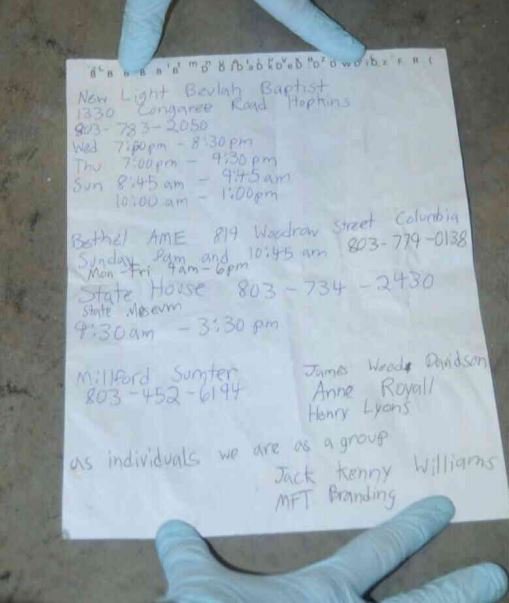 New Light Beulah Baptist
1330 Congaree Road Hopkins
803-783-2050
Wed 7:00pm - 8:30pm
Thu 7:00pm - 9:30pm
Sun 8:45am - 9:45am
10:00am - 1:00pm
Bethel AME 819 Woodrow Street Columbia
Sunday 8am and 10:45 am 803-779-0138
Mon-Fri 9am-6pm
State House 803-734-2430
State Museum
9:30am - 3:30pm
Millford Sumter
803-452-6194
James Woods Davidson
Anne Royall
Henry Lyons
as individuals we are as a group
Jack Kenny Williams
MFT Branding